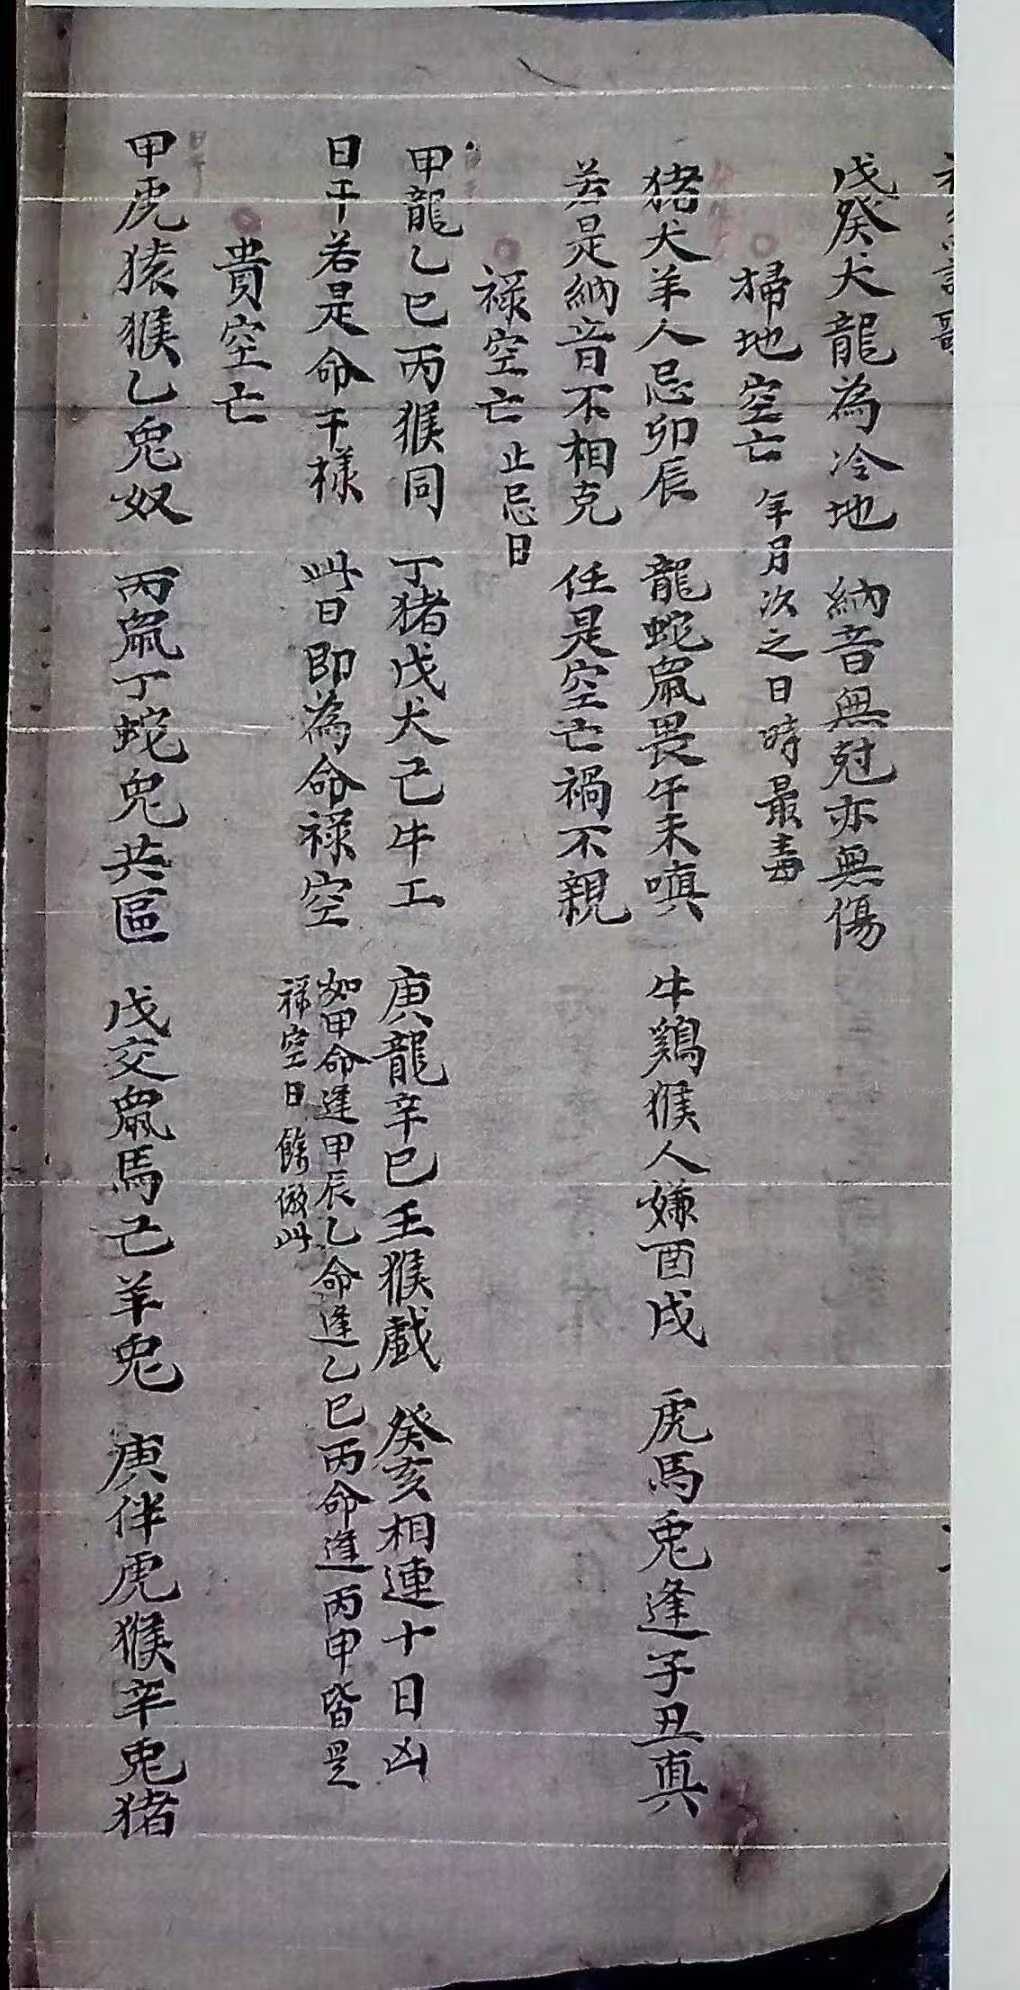 戊癸犬龍為冷地 納音無尅亦無傷
掃地空亡 年月次之日時最毒
猪犬羊人忌卯辰 龍蛇鼠畏午未嗔 牛鷄猴人嫌酉戌 虎馬兎逢子丑真
若是納音不相克 任是空亡禍不親
禄空亡 止忌日
甲龍乙巳丙猴同 丁猪戊犬己牛工 庚龍辛巳壬猴戲 癸亥相連十日凶
日干若是命干樣 此日即為命禄空 如甲命逢甲辰乙命逢乙巳丙命逢丙申皆是
禄空日餘倣此
貴空亡
甲虎猿猴乙兎奴 丙鼠丁蛇兎共區 戊交鼠馬己羊兎 庚伴虎猴辛兎猪